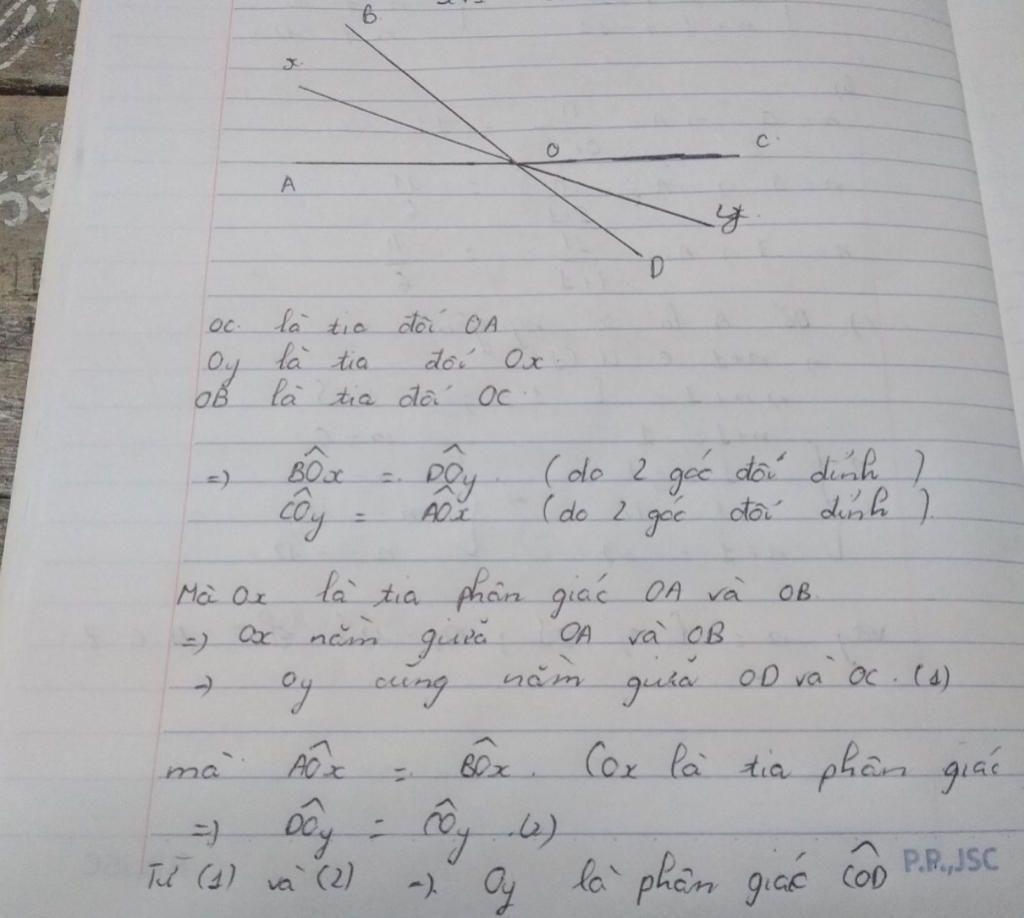 B
x
O
C
A
y
D
OC là tia đối OA
Oy là tia đối Ox
OB là tia đối OC
=) BÔx = DÔy (do 2 góc đối đỉnh)
CÔy = AÔx (do 2 góc đối đỉnh).
Mà Ox là tia phân giác OA và OB.
=) Ox nằm giữa OA và OB
=) Oy cũng nằm giữa OD và OC. (1)
mà AÔx = BÔx. (Ox là tia phân giác
=) DÔy = CÔy (2)
Từ (1) và (2) =). Oy là phân giác CÔD
P.P.,JSC